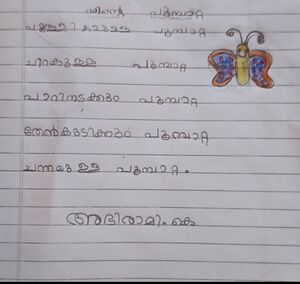 എന്റെ പൂമ്പാറ്റ
പുള്ളികളുള്ള പൂമ്പാറ്റ
ചിറകുള്ള പൂമ്പാറ്റ
പാറിനടക്കും പൂമ്പാറ്റ
തേൻകുടിക്കും പൂമ്പാറ്റ
ചന്തമുള്ള പൂമ്പാറ്റ.
അഭിരാമി. കെ